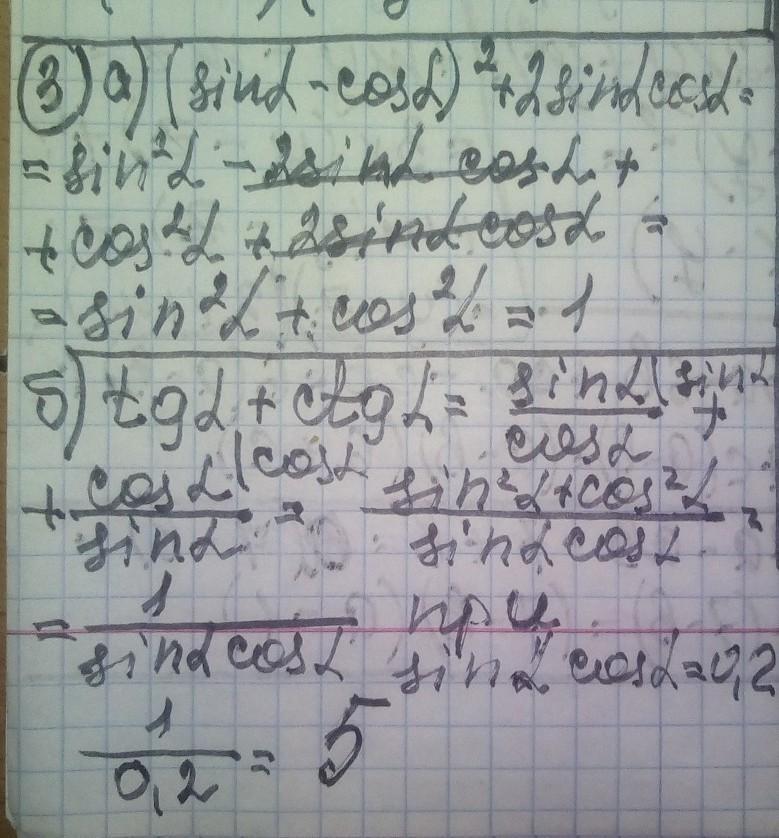 3) а) (sinα - cosα)² + 2sinα cosα =
= sin²α - 2sinα cosα +
+ cos²α + 2sinα cosα =
= sin²α + cos²α = 1
б) tgα + ctgα = sinα/cosα (sinα +
+ cosα/sinα (cosα = sin²α + cos²α/sinα cosα =
= 1/sinα cosα при
sinα cosα = 0,2
1/0,2 = 5